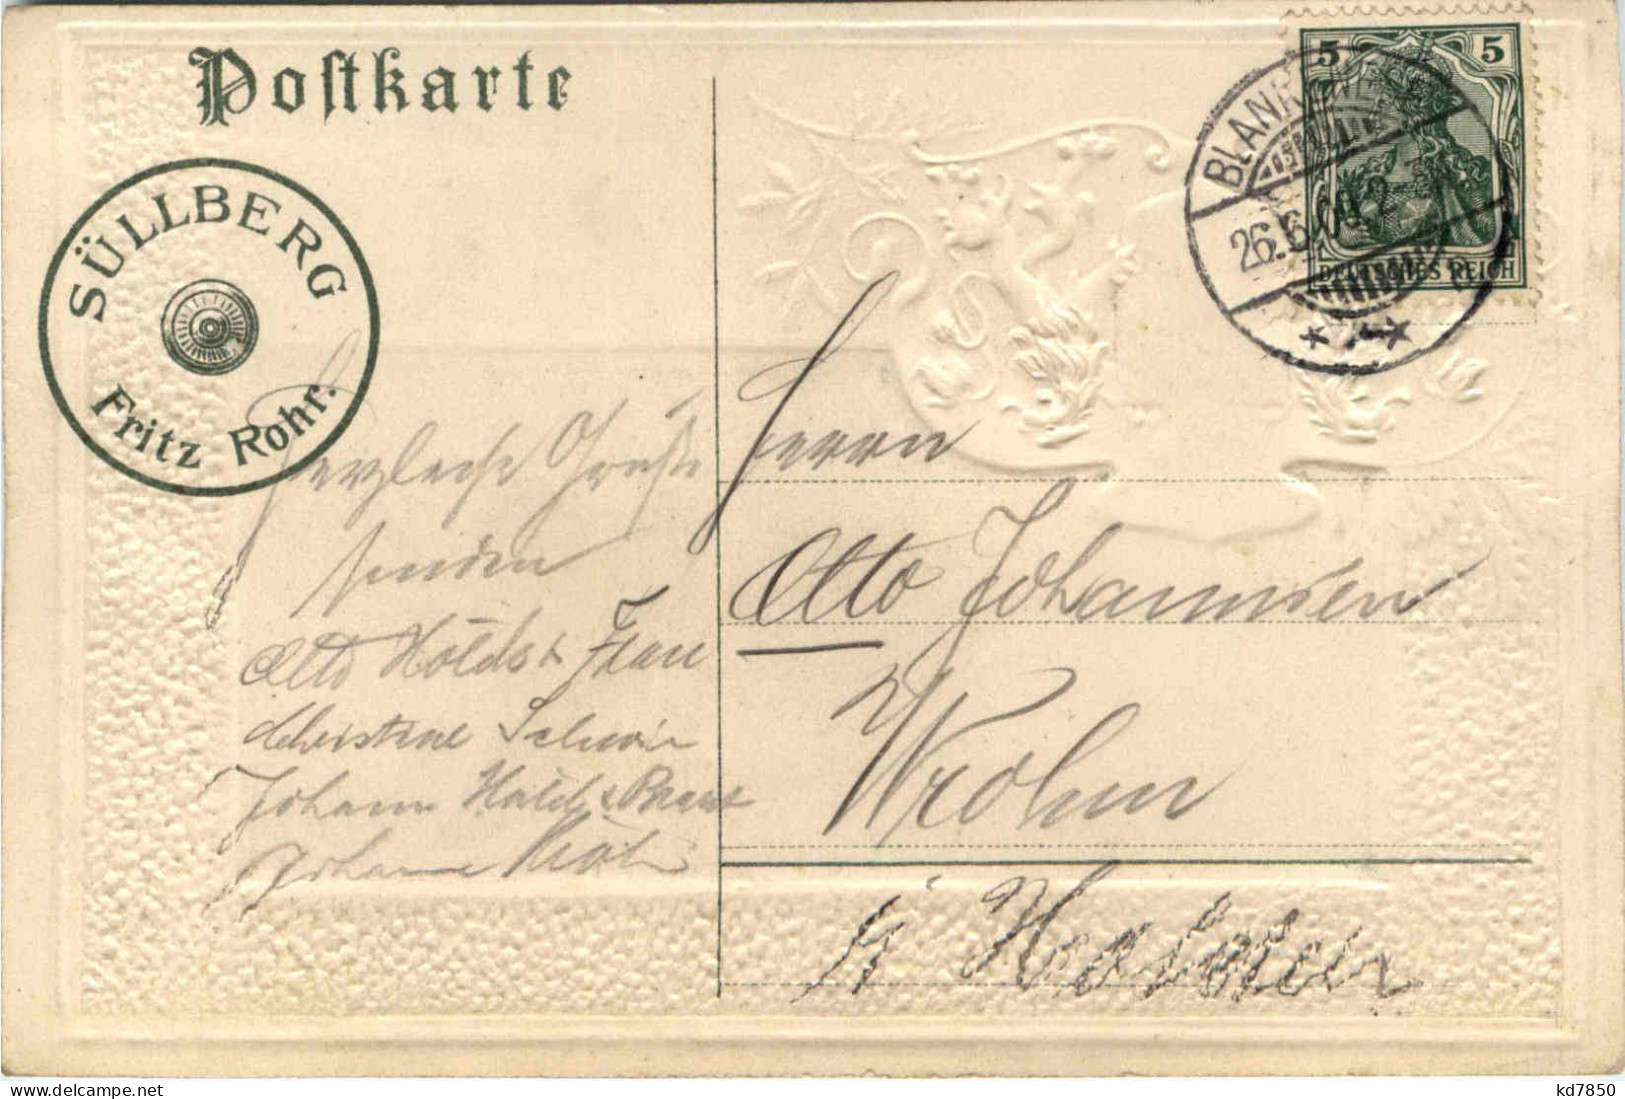 Postkarte
SÜLLBERG
Fritz Rohr.
5 5
DEUTSCHES REICH
26.6.
Herzliche Grüße
senden
Otto & Frau
Christine
Johann
Johann
Herrn
Otto Johannsen
Wrohm
i/ Holstein
delcampe.net
kd7850